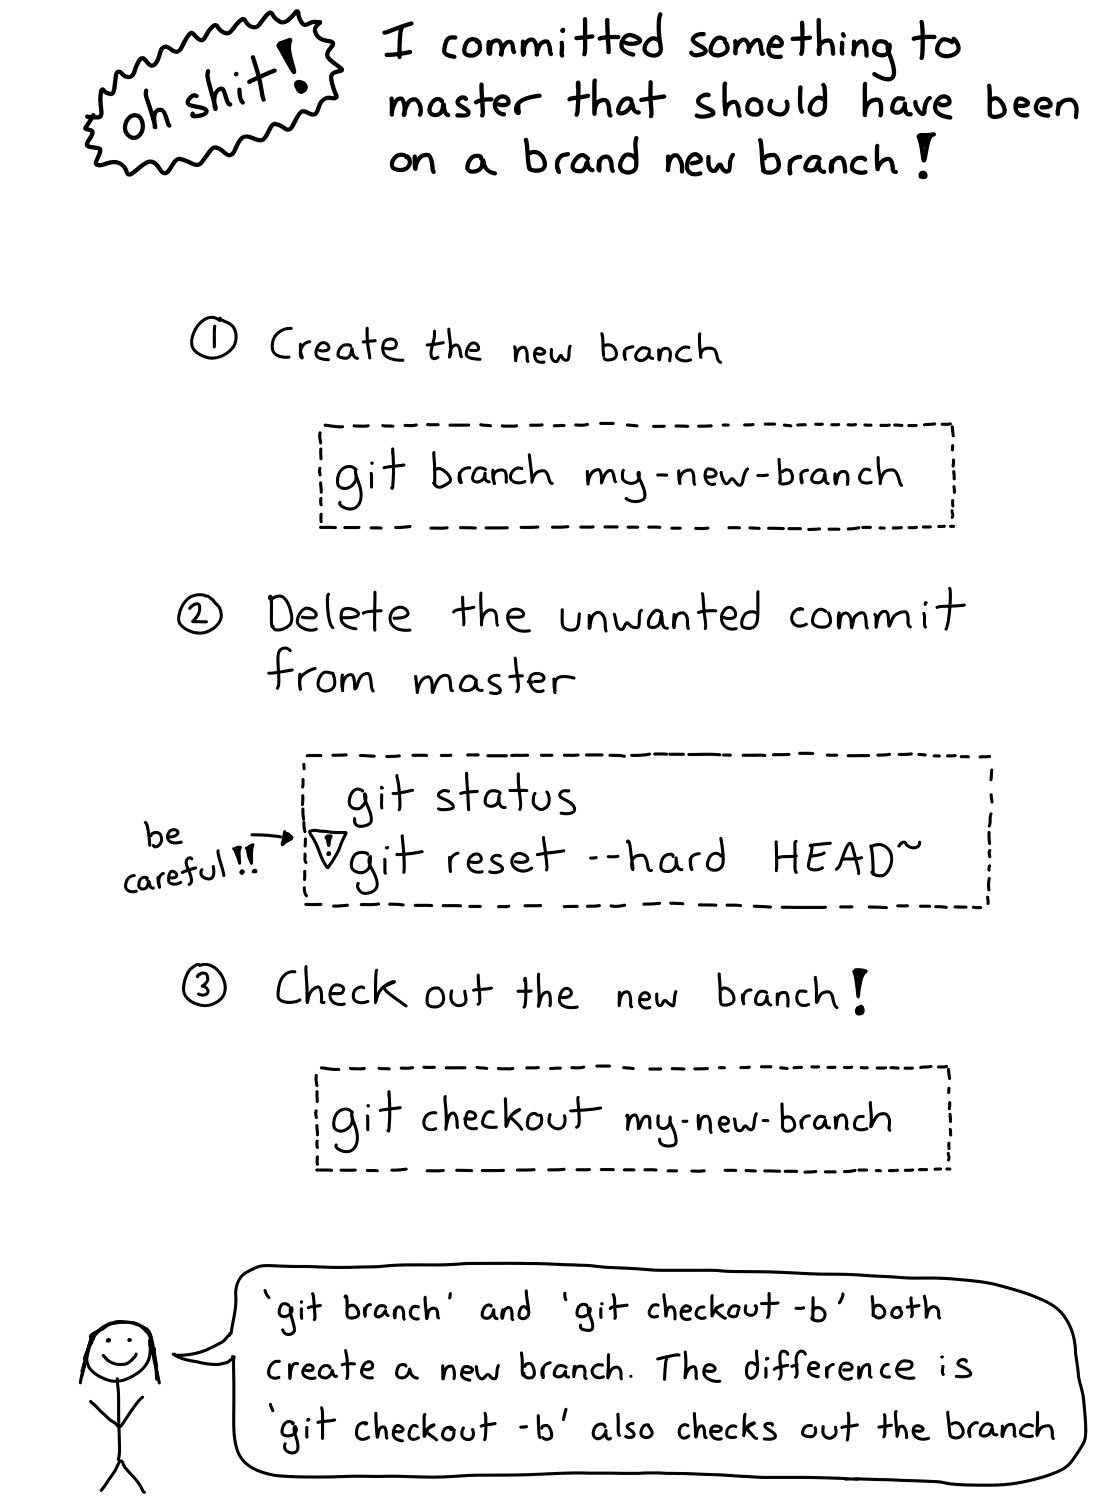 oh shit!
I committed something to
master that should have been
on a brand new branch!
① Create the new branch
git branch my-new-branch
② Delete the unwanted commit
from master
git status
be
careful!!
! git reset --hard HEAD~
③ Check out the new branch!
git checkout my-new-branch
`git branch' and `git checkout -b' both
create a new branch. The difference is
`git checkout -b' also checks out the branch